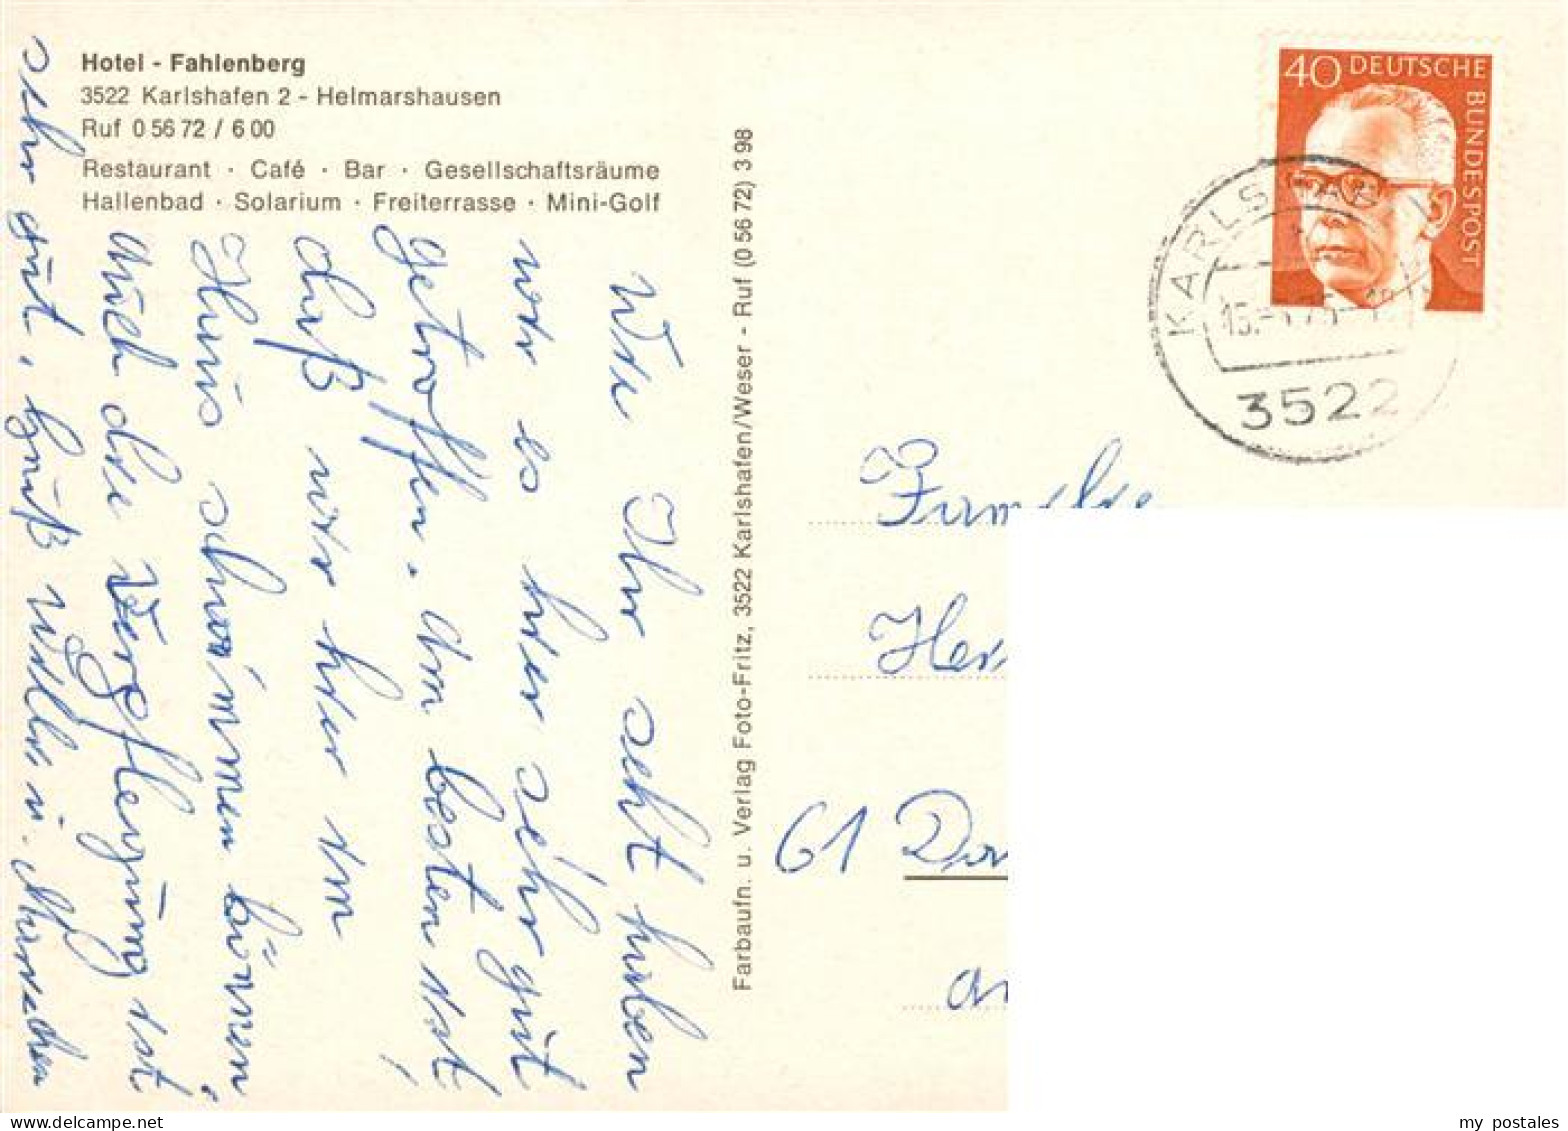 Hotel - Fahlenberg
3522 Karlshafen 2 - Helmarshausen
Ruf 0 56 72 / 6 00
Restaurant · Café · Bar · Gesellschaftsräume
Hallenbad · Solarium · Freiterrasse · Mini-Golf
Wie Ihr seht haben
wir es hier sehr gut
getroffen. Am besten ist,
daß wir hier im
Haus schwimmen können,
auch die Verpflegung ist
sehr gut, Gruß Willi u.
Farbaufn. u. Verlag Foto-Fritz, 3522 Karlshafen/Weser - Ruf (0 56 72) 3 98
40 DEUTSCHE BUNDESPOST
KARLSHAFEN
3522
Familie
61
my_postales